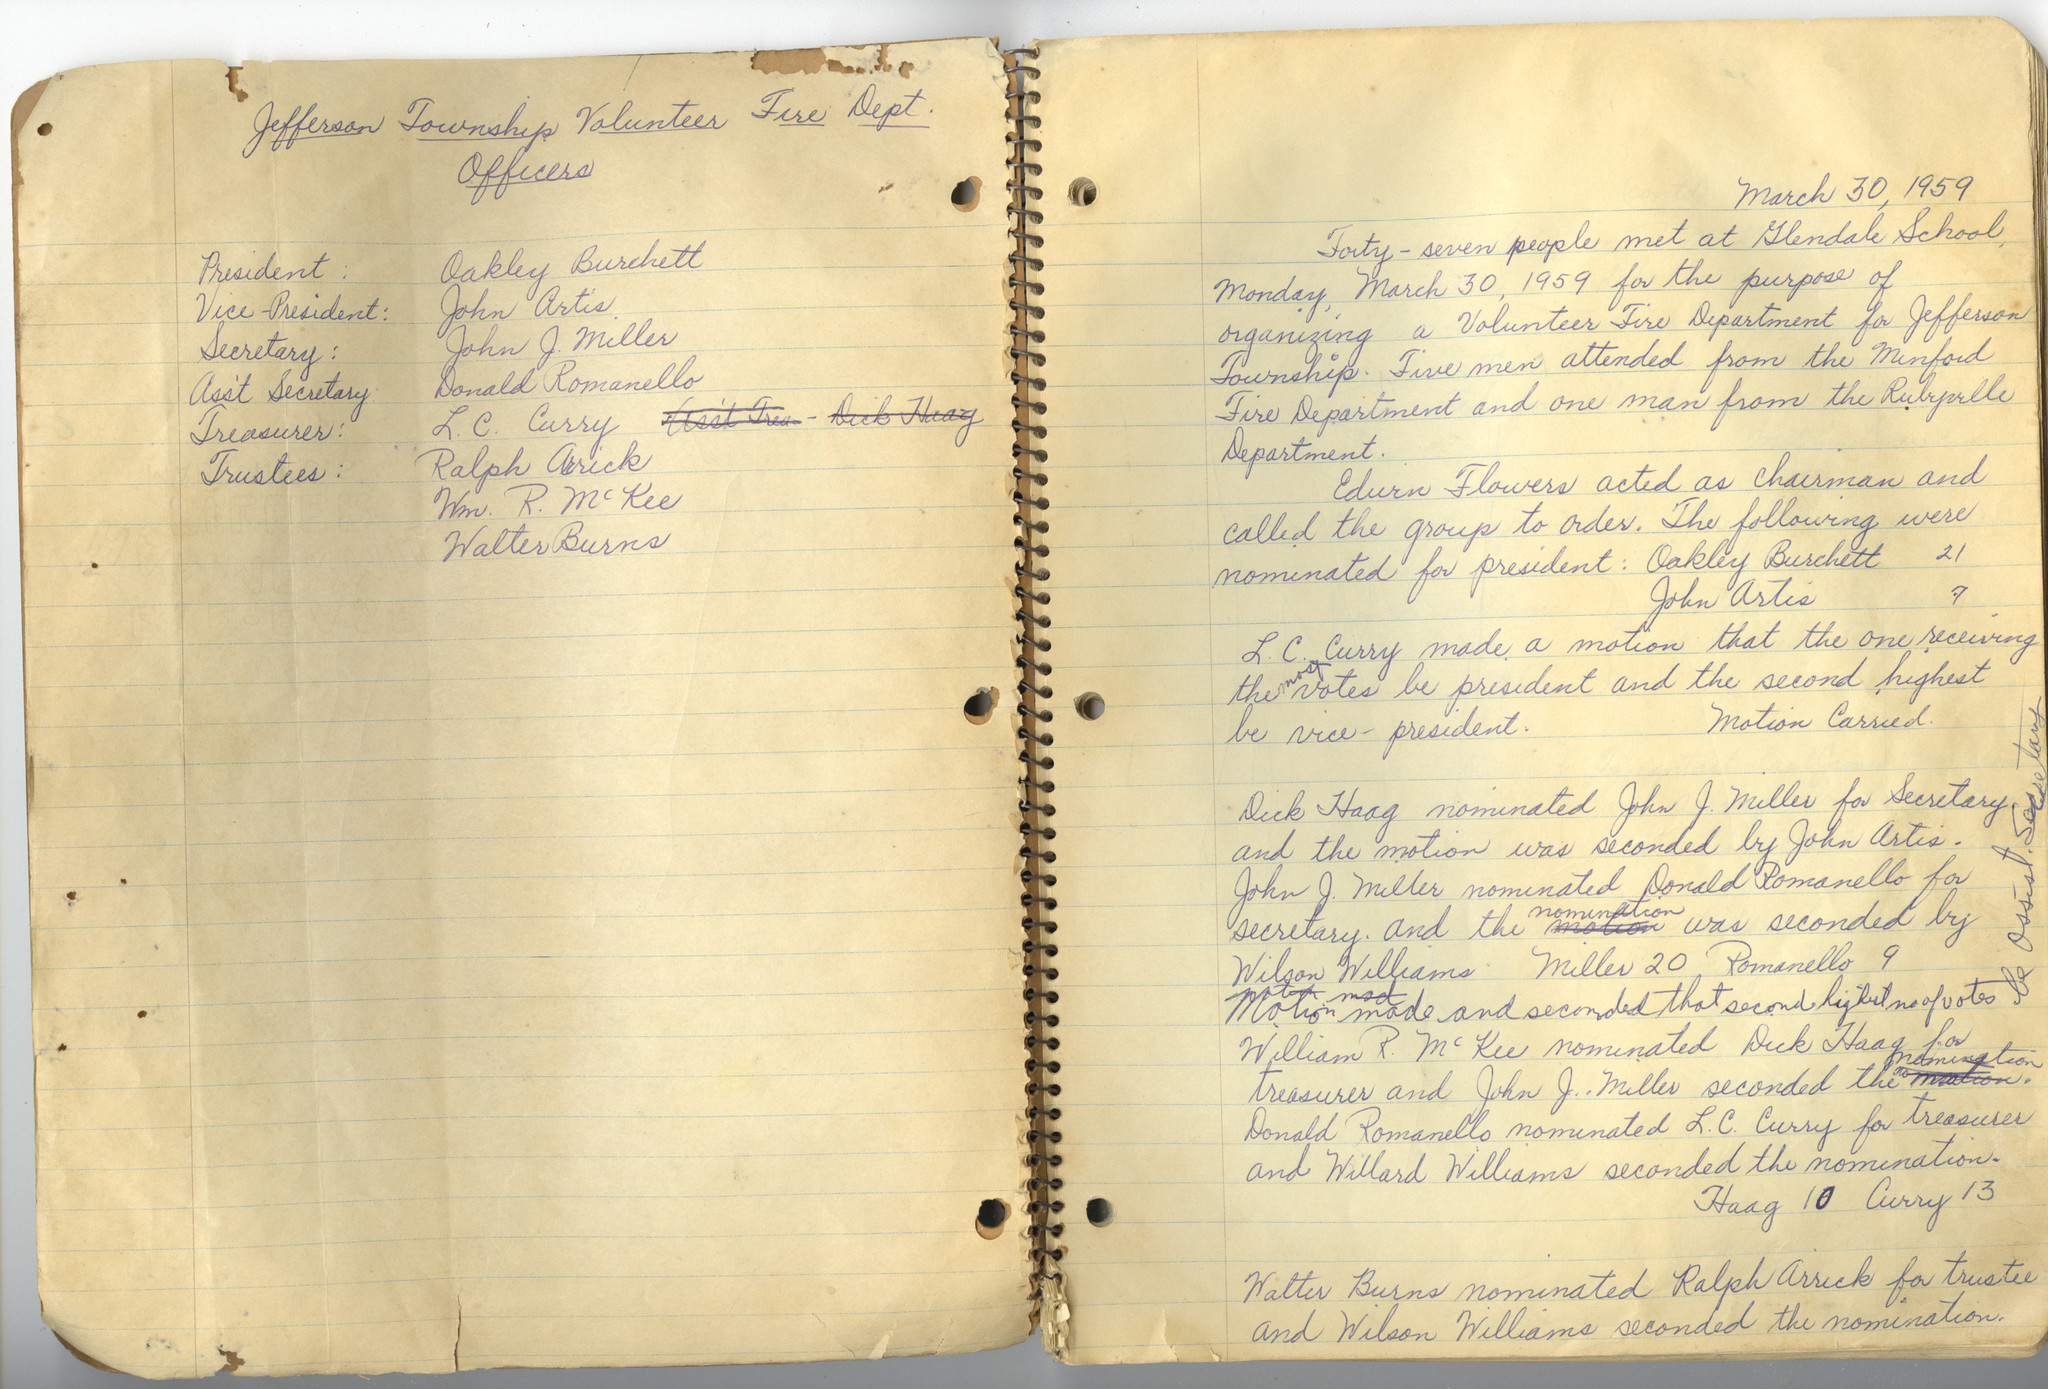 Jefferson Township Volunteer Fire Dept.
Officers
President: Oakley Burchett
Vice-President: John Artis
Secretary: John J. Miller
Ass't Secretary Donald Romanello
Treasurer: L. C. Curry Ass't Trea. - Dick Haag
Trustees: Ralph Arrick
Wm. R. McKee
Walter Burns
March 30, 1959
Forty-seven people met at Glendale School,
Monday, March 30, 1959 for the purpose of
organizing a Volunteer Fire Department for Jefferson
Township. Five men attended from the Minford
Fire Department and one man from the Rubyville
Department.
Edwin Flowers acted as chairman and
called the group to order. The following were
nominated for president: Oakley Burchett 21
John Artis 7
L. C. Curry made a motion that the one receiving
the most votes be president and the second highest
be vice-president. Motion Carried.
Dick Haag nominated John J. Miller for Secretary
and the motion was seconded by John Artis.
John J. Miller nominated Donald Romanello for
secretary. and the motion nomination was seconded by
Wilson Williams Miller 20 Romanello 9
Motion made and seconded that second highest no of votes
be assist. Secretary
William R. McKee nominated Dick Haag for
treasurer and John J. Miller seconded the motion nomination.
Donald Romanello nominated L.C. Curry for treasurer
and Willard Williams seconded the nomination.
Haag 10 Curry 13
Walter Burns nominated Ralph Arrick for trustee
and Wilson Williams seconded the nomination.